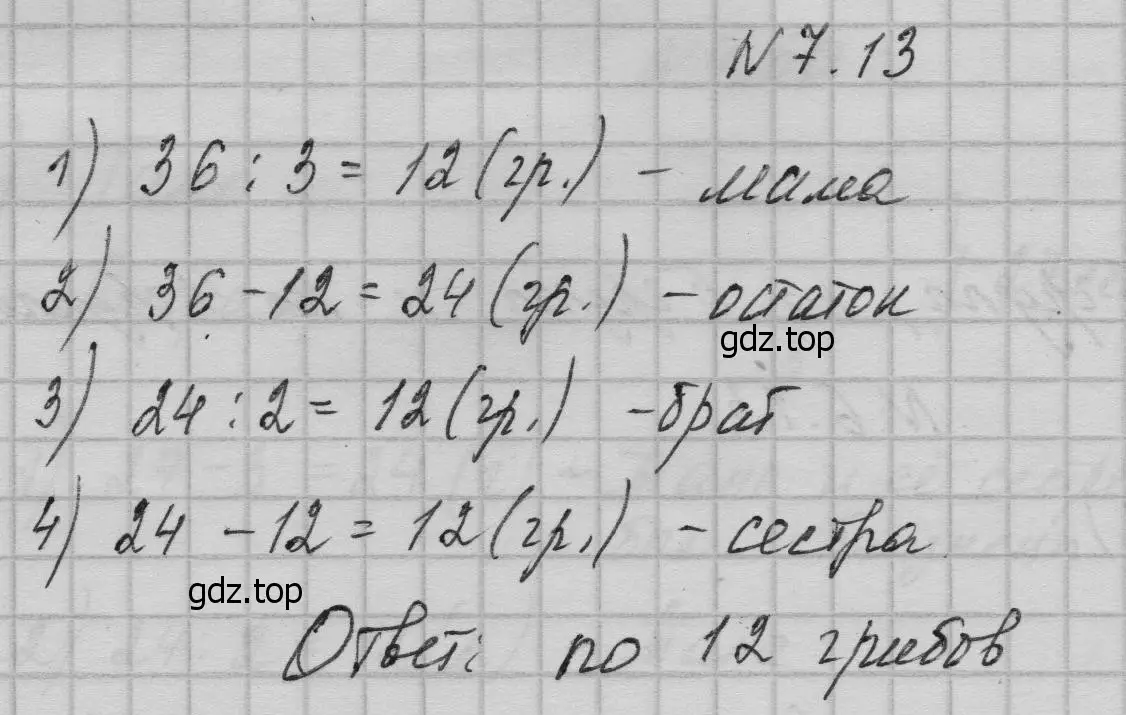 N 7.13
1) 36 : 3 = 12 (гр.) - мама
2) 36 - 12 = 24 (гр.) - остаток
gdz.top
3) 24 : 2 = 12 (гр.) - брат
4) 24 - 12 = 12 (гр.) - сестра
gdz.top
Ответ: по 12 грибов